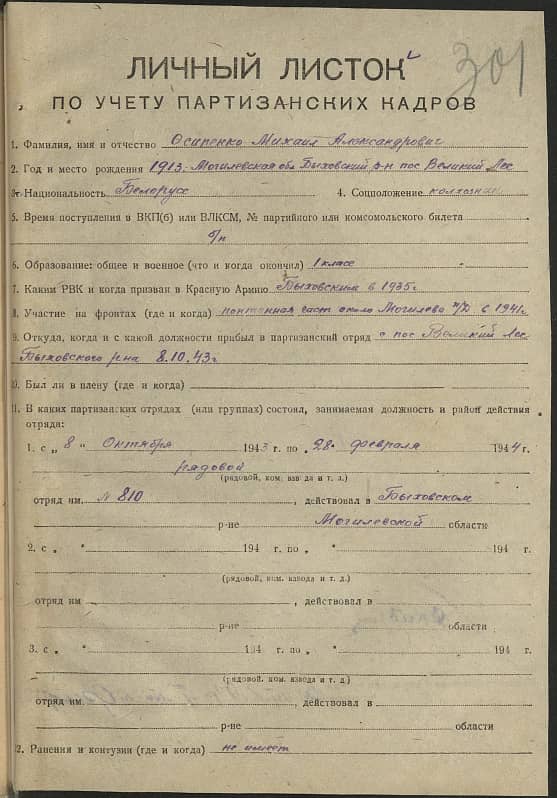 301
ЛИЧНЫЙ ЛИСТОК
ПО УЧЕТУ ПАРТИЗАНСКИХ КАДРОВ
1. Фамилия, имя и отчество Осипенко Михаил Александрович
2. Год и место рождения 1913 Могилевская обл Быховский р-н пос Великий Лес
3. Национальность Беларусс 4. Соцположение колхозник
5. Время поступления в ВКП(б) или ВЛКСМ, № партийного или комсомольского билета
б/п
6. Образование: общее и военное (что и когда окончил) 1 класс
7. Каким РВК и когда призван в Красную Армию Быховским в 1935 г
8. Участие на фронтах (где и когда) понтонная част около Могилева в 1941 г
9. Откуда, когда и с какой должности прибыл в партизанский отряд с пос Великий Лес
Быховского р-на 8.10.43 г
10. Был ли в плену (где и когда)
11. В каких партизанских отрядах (или группах) состоял, занимаемая должность и район действия
отряда:
1. с „ 8 " Октября 1943 г. по „ 28 " февраля 1944 г.
рядовой
(рядовой, ком. взвода и т. д.)
отряд им. № 810, действовал в Быховском
р-не Могилевской области
2. с „ " 194 г. по „ " 194 г.
(рядовой, ком. взвода и т. д.)
отряд им, действовал в
р-не области
3. с „ " 194 г. по „ " 194 г.
(рядовой, ком. взвода и т. д.)
отряд им, действовал в
р-не области
12. Ранения и контузии (где и когда) не имеет